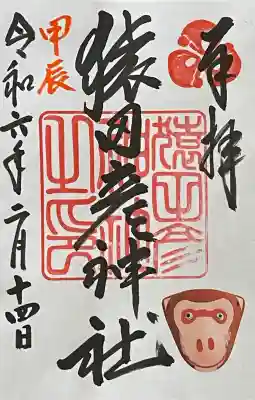 奉拝
猿田彦神社
甲辰
令和六年二月十四日